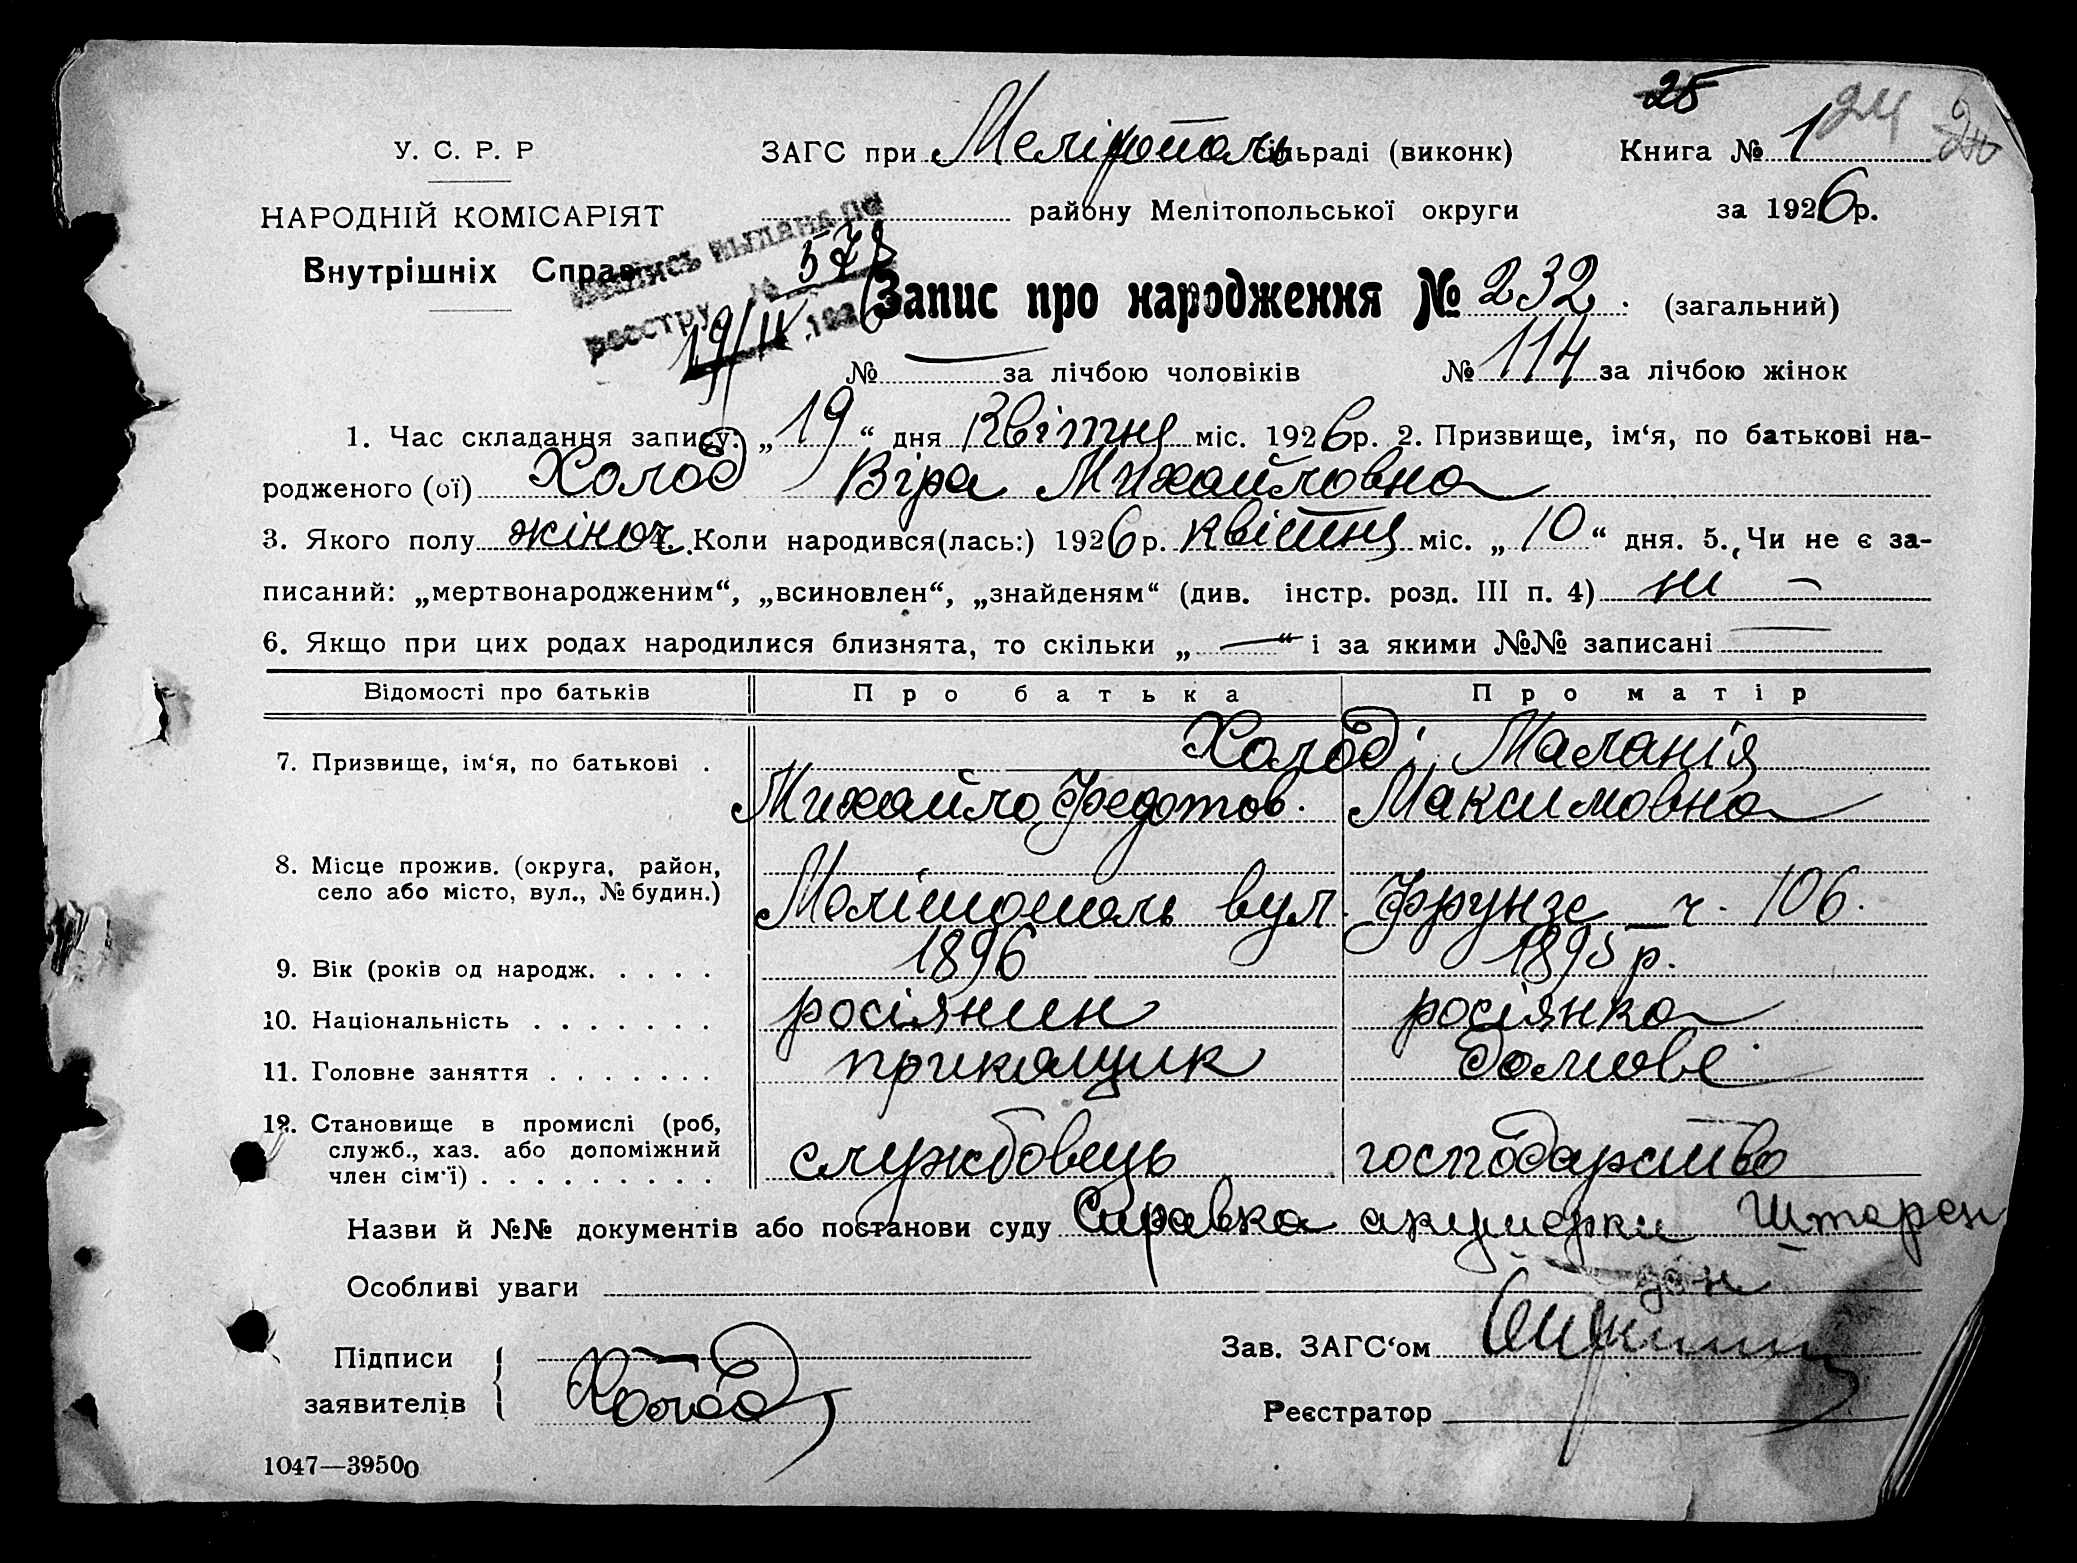 25 24
У. С. Р. Р ЗАГС при Мелітополь сільраді (виконк) Книга № 1
НАРОДНІЙ КОМІСАРІЯТ району Мелітопольської округи за 1926 р.
Внутрішніх Справ
выпись выдана по
реестру № 578
19/IV 1926
Запис про народження № 232. (загальний)
№ — за лічбою чоловіків № 114 за лічбою жінок
1. Час складання запису: „19“ дня Квітня міс. 1926 р. 2. Призвище, ім‘я, по батькові на-
родженого (ої) Холод Віра Михайловна
3. Якого полу жіноч. 4. Коли народився(лась:) 1926 р. квітня міс. „10“ дня. 5. Чи не є за-
писаний: „мертвонародженим“, „всиновлен“, „знайденям“ (див. інстр. розд. III п. 4) ні —
6. Якщо при цих родах народилися близнята, то скільки „—“ і за якими №№ записані —
Відомості про батьків Про батька Про матір
7. Призвище, ім‘я, по батькові . Холоді Маланія
Михайло Федотов. Максимовна
8. Місце прожив. (округа, район,
село або місто, вул., № будин.) Мелітополь вул. Фрунзе ч. 106.
9. Вік (років од народж. . . . . 1896 1895 р.
10. Національність . . . . . . . росіянин росіянка
11. Головне заняття . . . . . . . прикащик домове
12. Становище в промислі (роб,
служб., хаз. або допоміжний
член сім‘ї) . . . . . . . . . службовець господарство
Назви й №№ документів або постанови суду Справка акушерки Штерен
Особливі уваги зон
Підписи
заявителів Холод
Зав. ЗАГС‘ом
Реєстратор
1047—39500